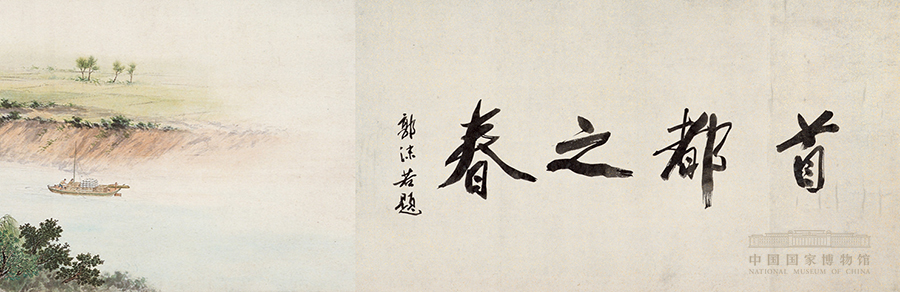 首都之春
郭沫若题
中国国家博物馆
NATIONAL MUSEUM OF CHINA